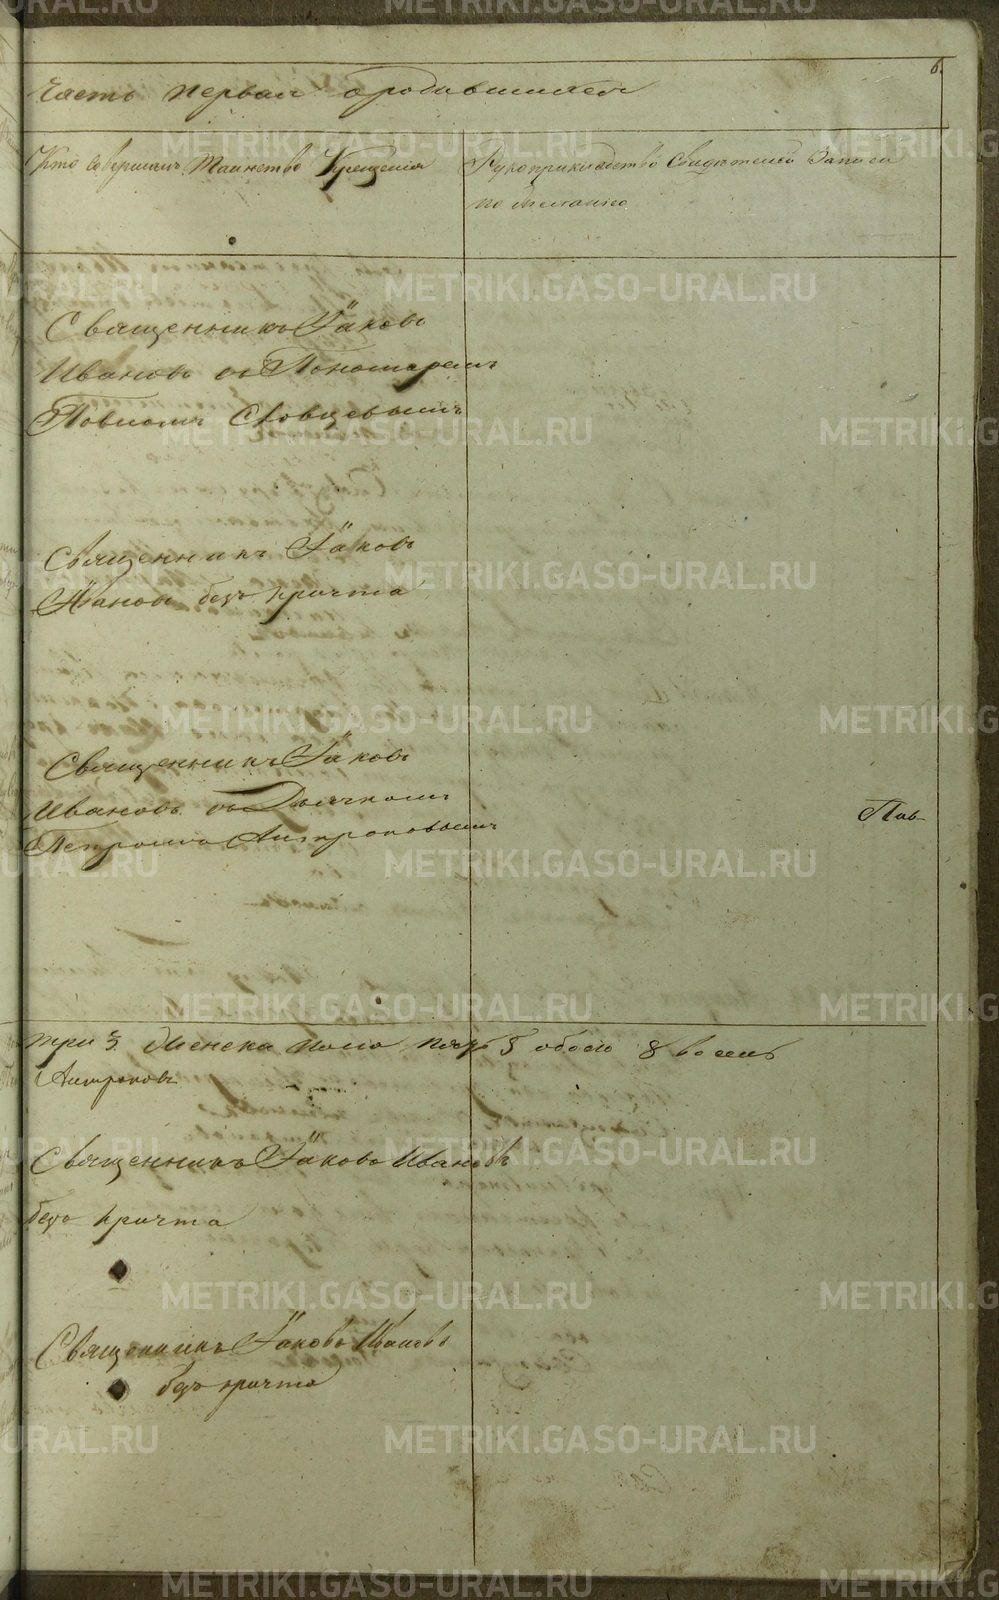 6.
Часть первая о родившихся
Кто совершалъ таинство Крещенія
Рукоприкладство свидѣтелей записи
по желанію
Священникъ Іаковъ
Ивановъ съ Пономаремъ
Павломъ Словцевымъ
Священникъ Іаковъ
Ивановъ безъ причта
Священникъ Іаковъ
Ивановъ съ Дьячкомъ
Петромъ Антроповымъ
Пав-
три 3. Женска пола пять 5 обоего 8 восемь
Антроповъ
Священникъ Іаковъ Ивановъ
безъ причта
Священникъ Іаковъ Ивановъ
безъ причта
METRIKI.GASO-URAL.RU